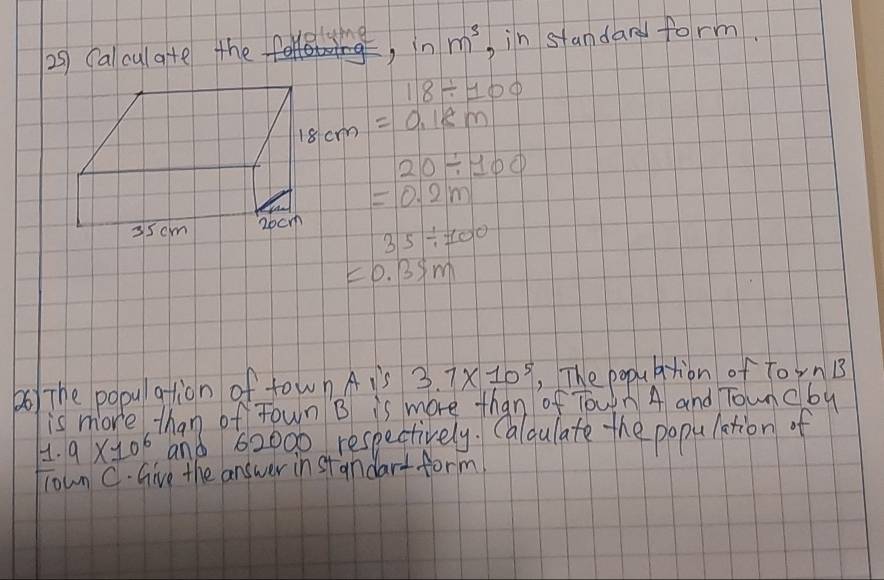 25) Calculate the volume, in m³, in standard form.
18 ÷ 100
18cm = 0.18m
20 ÷ 100
= 0.2m
35cm 20cm
35 ÷ 100
= 0.35m
26) The population of town A is 3.7 × 10⁵, The population of Town B
is more than of Town B is more than of Town A and Town C by
1.9 × 10⁶ and 62000 respectively. Calculate the population of
Town C. Give the answer in standart form